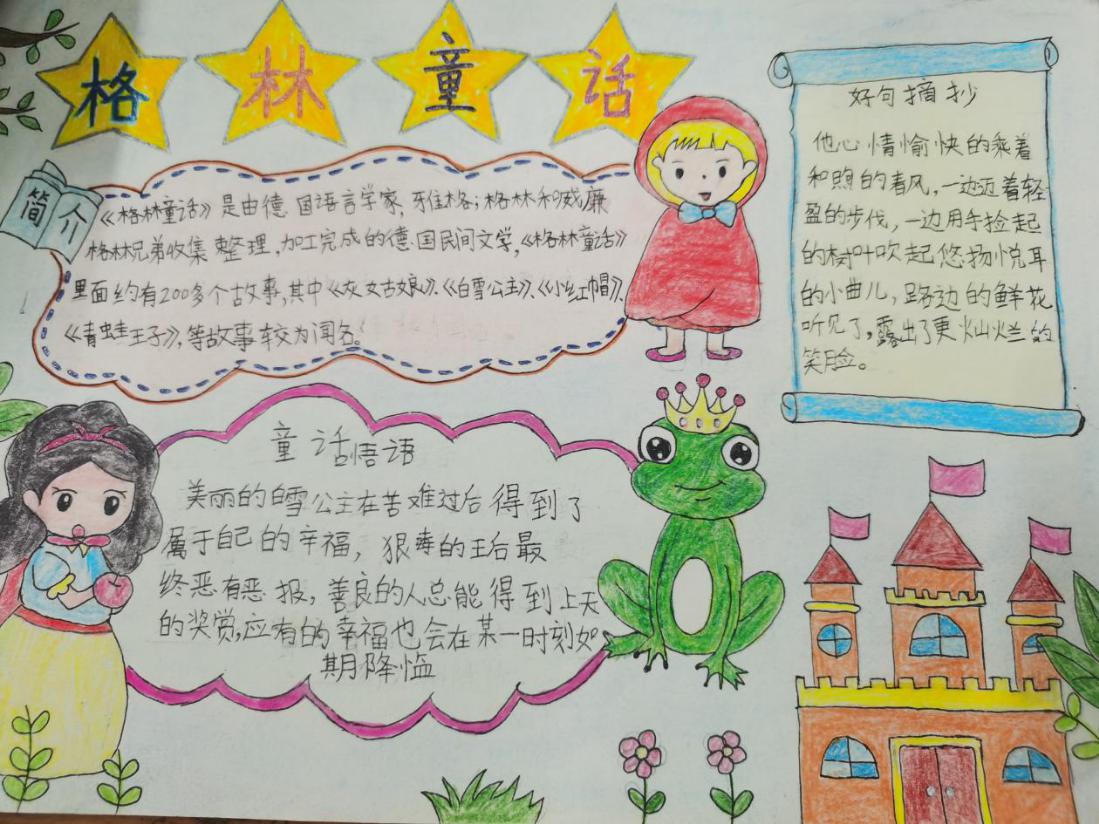 格林童话
简介
《格林童话》是由德国语言学家,雅各;格林和威廉
格林兄弟收集整理,加工完成的德国民间文学,《格林童话》
里面约有200多个古故事,其中《灰女古娘》、《白雪公主》、《小红帽》、
《青蛙王子》,等故事较为闻名。
好句摘抄
他心情愉快的乘着
和煦的春风,一边迈着轻
盈的步伐,一边用手捡起
的树叶吹起悠扬悦耳
的小曲儿,路边的鲜花
听见了,露出了更灿烂的
笑脸。
童话悟语
美丽的白雪公主在苦难过后得到了
属于自己的幸福,狠毒的王后最
终恶有恶报,善良的人总能得到上天
的奖赏,应有的幸福也会在某一时刻如
期降临